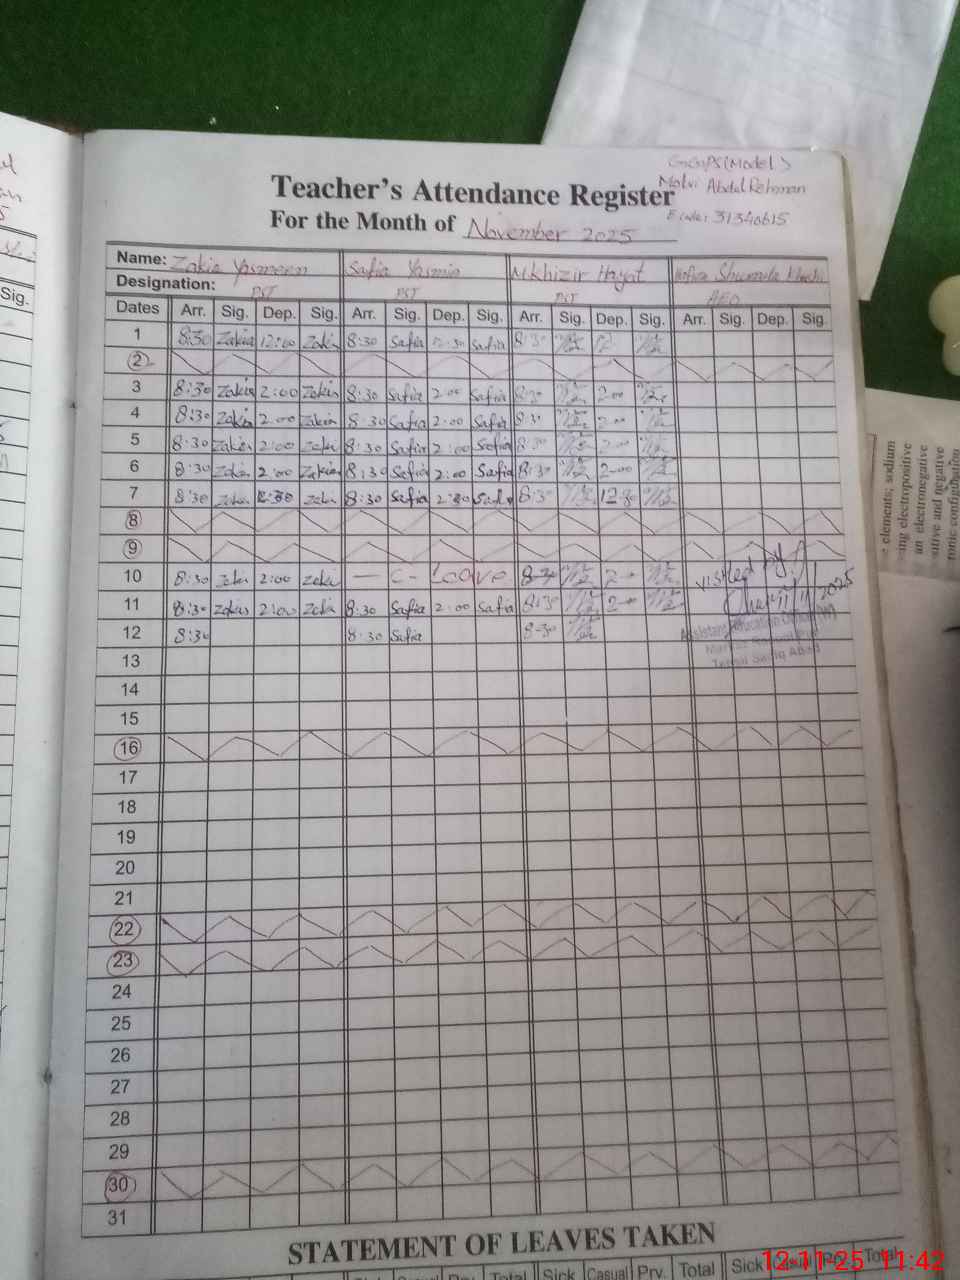 GGPS (Model)
Molvi Abdul Rehman
Ecode: 31340615
Teacher's Attendance Register
For the Month of November 2025
Name: Zakia Yasmeen Safia Yasmin M.Khizir Hayat
Designation: PST PST PST AEO
Dates Arr. Sig. Dep. Sig. Arr. Sig. Dep. Sig. Arr. Sig. Dep. Sig. Arr. Sig. Dep. Sig.
1 8:30 Zakia 12:00 Zakia 8:30 Safia 12:30 Safia 8:30 12
2
3 8:30 Zakia 2:00 Zakia 8:30 Safia 2:00 Safia 8:30 2:00
4 8:30 Zakia 2:00 Zakia 8:30 Safia 2:00 Safia 8:30 2:00
5 8:30 Zakia 2:00 Zakia 8:30 Safia 2:00 Safia 8:30 2:00
6 8:30 Zakia 2:00 Zakia 8:30 Safia 2:00 Safia 8:30 2:00
7 8:30 Zakia Zakia 8:30 Safia Safia 8:30
8
9
10 8:30 Zakia 2:00 Zakia — C- Leave 8:30 visited by
11 8:30 Zakia 2:00 Zakia 8:30 Safia 2:00 Safia 8:30 11/11/2025
12 8:30 8:30 Safia 8:30
Assistant Education Officer
13
14
15
16
17
18
19
20
21
22
23
24
25
26
27
28
29
30
31
STATEMENT OF LEAVES TAKEN
Total Sick Casual Prv. Total Sick Total
12-11-25 11:42
Sig.
elements; sodium
electropositive
an electronegative
and negative
configuration